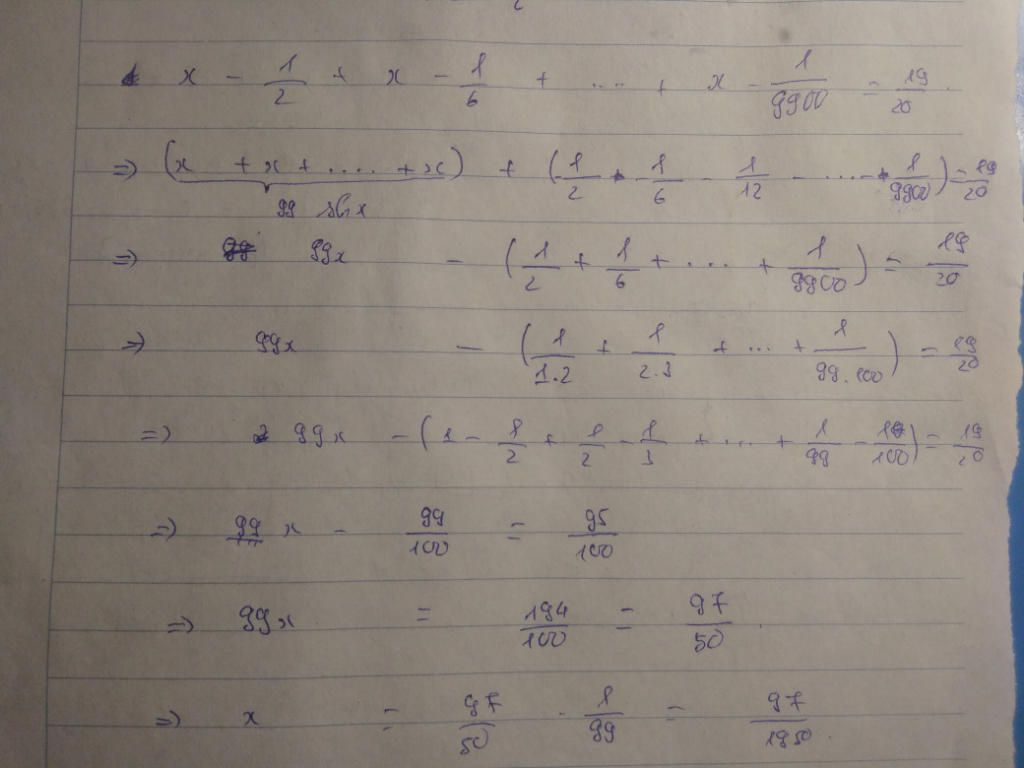 x - 1/2 + x - 1/6 + .... + x - 1/9900 = 19/20
=> (x + x + .... + x) + (-1/2 - 1/6 - 1/12 - .... - 1/9900) = 19/20
99
=> 99x - (1/2 + 1/6 + ... + 1/9900) = 19/20
=> 99x - (1/1.2 + 1/2.3 + ... + 1/99.100) = 19/20
=> 99x - (1 - 1/2 + 1/2 - 1/3 + ... + 1/99 - 1/100) = 19/20
=> 99x - 99/100 = 95/100
=> 99x = 194/100 = 97/50
=> x = 97/50 . 1/99 = 97/1950